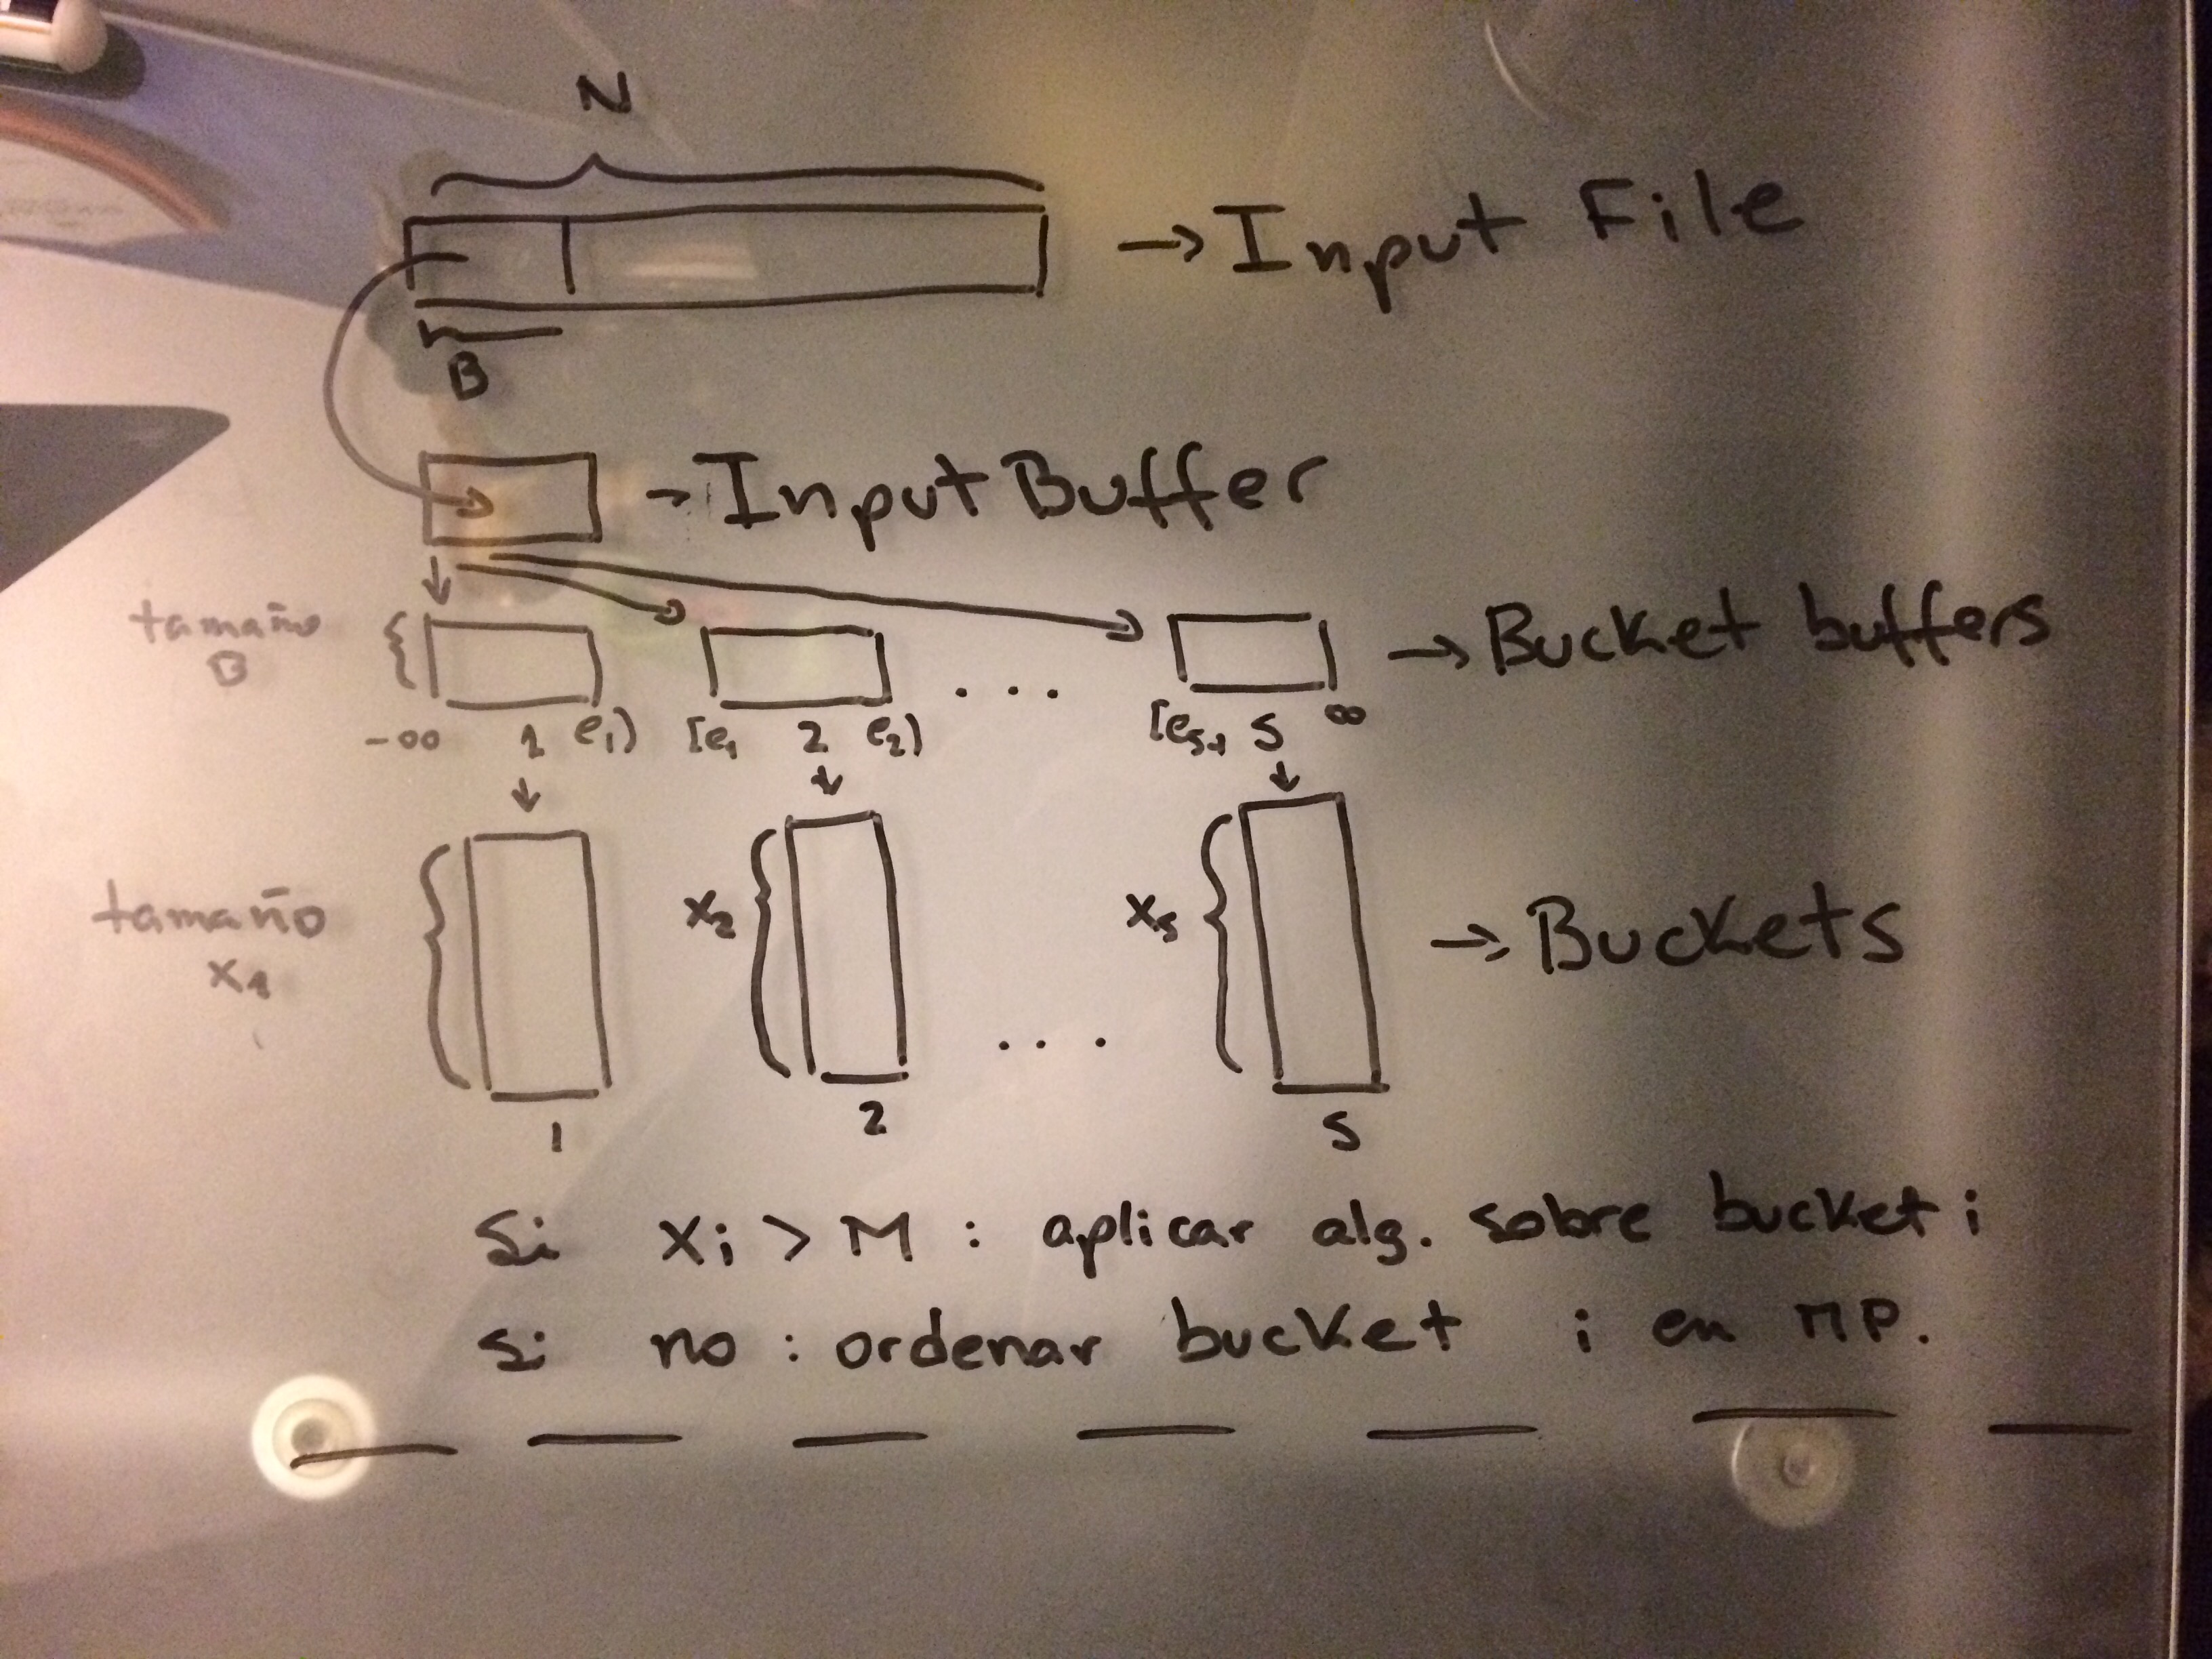 N
→ Input File
B
→ Input Buffer
tamaño
B
→ Bucket buffers
-∞ 1 e₁) [e₁ 2 e₂) ... [eₛ₋₁ S ∞
tamaño
x₁
x₂ ... xₛ → Buckets
1 2 S
Si xi > M : aplicar alg. sobre bucket i
Si no : ordenar bucket i en MP.